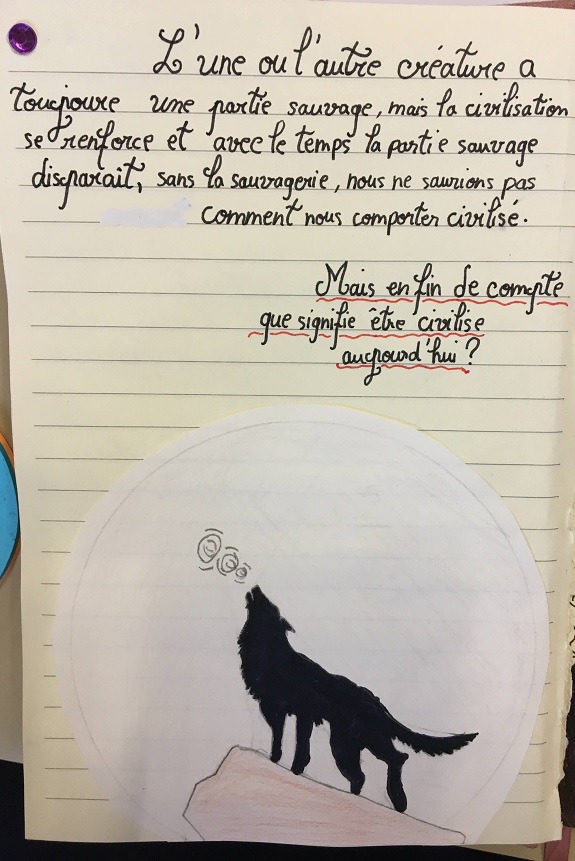 L'une ou l'autre créature a
toucjoure une partie sauvage, mais la civilisation
se renforce et avec le temps la partie sauvage
disparait, sans la sauvagerie, nous ne saurions pas
comment nous comporter civilisé.
Mais en fin de compte
que signifie être civilise
aucjourd'hui ?